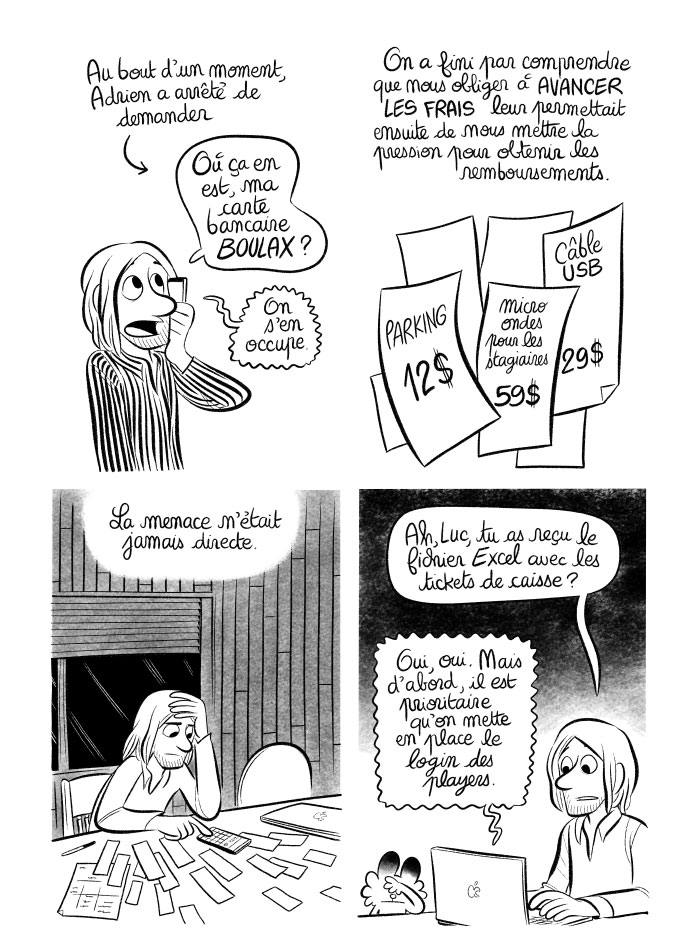 Au bout d'un moment,
Adrien a arrêté de
demander
Où ça en
est, ma
carte
bancaire
BOULAX ?
On
s'en
occupe.
On a fini par comprendre
que nous obliger à AVANCER
LES FRAIS leur permettait
ensuite de nous mettre la
pression pour obtenir les
remboursements.
PARKING
12$
micro
ondes
pour les
stagiaires
59$
Câble
USB
29$
La menace n'était
jamais directe.
Ah, Luc, tu as reçu le
fichier Excel avec les
tickets de caisse ?
Oui, oui. Mais
d'abord, il est
prioritaire
qu'on mette
en place le
login des
players.